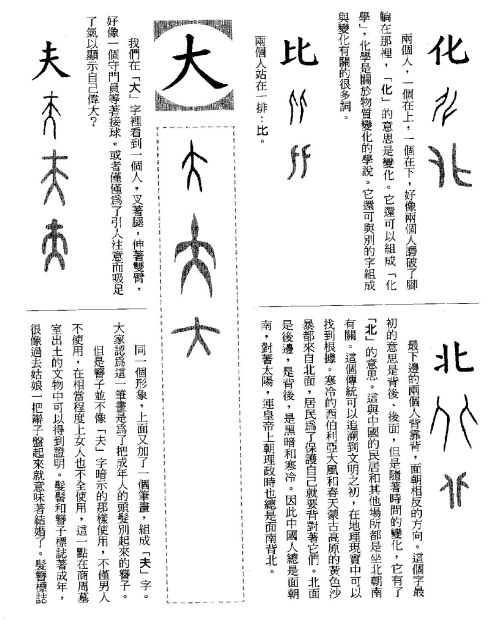 化
兩個人，一個在上，一個在下，好像兩個人磨破了腳
躺在那裡，「化」的意思是變化。它還可以組成「化
學」，化學是關於物質變化的學說。它還可與別的字組成
與變化有關的很多詞。
比
兩個人站在一排：比。
北
最下邊的兩個人背靠背，面朝相反的方向。這個字最
初的意思是背後、後面，但是隨著時間的變化，它有了
「北」的意思。這與中國的民居和其他場所都是坐北朝南
有關。這個傳統可以追溯到文明之初，在地理現實中可以
找到根據。寒冷的西伯利亞大風和春天蒙古高原的黃色沙
暴都來自北面，居民爲了保護自己就要背對著它們。北面
是後邊，是背後，是黑暗和寒冷。因此中國人總是面朝
南，對著太陽，連皇帝上朝理政時也總是面南背北。
大
我們在「大」字裡看到一個人，叉著腿，伸著雙臂，
好像一個守門員等著接球。或者僅僅爲了引人注意而吸足
了氣以顯示自己偉大？
夫
同一個形象，上面又加了一個筆畫，組成「夫」字。
大家認爲這一筆畫是爲了把成年人的頭髮別起來的簪子。
但是簪子並不像「夫」字暗示的那樣使用，不僅男人
不使用，在相當程度上女人也不全使用，這一點在商周墓
室出土的文物中可以得到證明。髮髻和簪子標誌著成年，
很像過去姑娘一把辮子盤起來就意味著結婚了。髮簪標誌